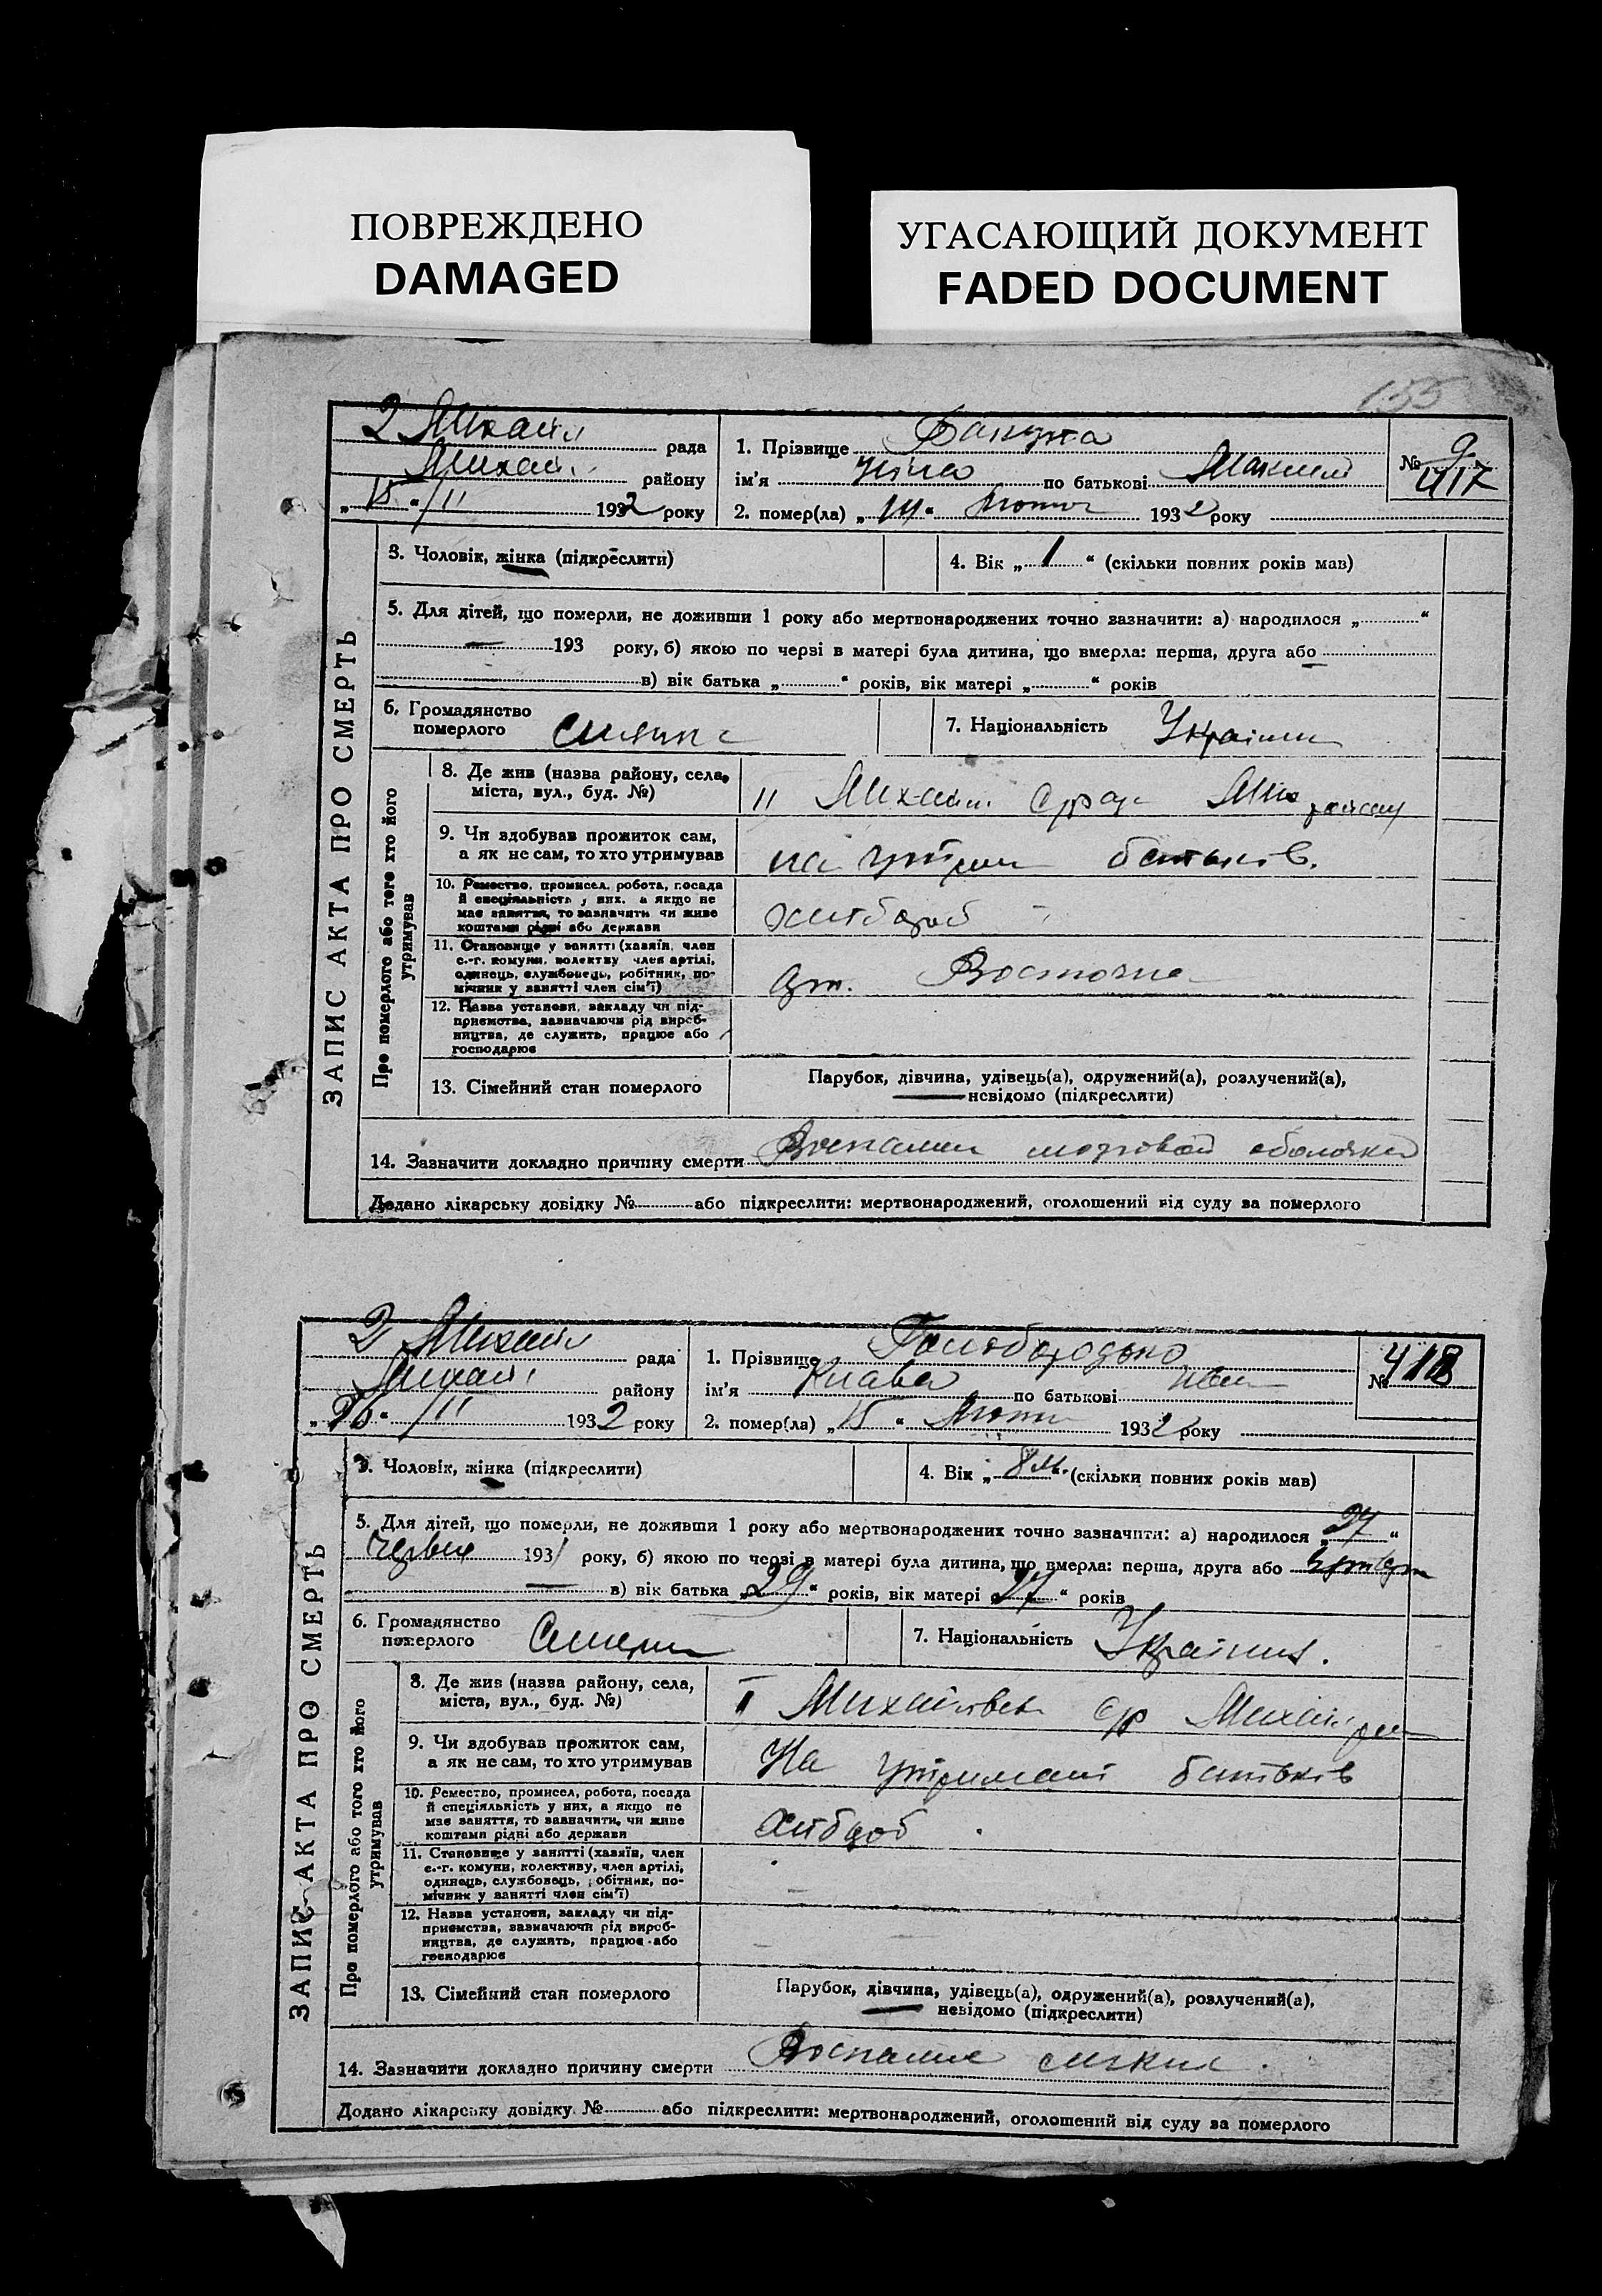 ПОВРЕЖДЕНО
DAMAGED
УГАСАЮЩИЙ ДОКУМЕНТ
FADED DOCUMENT
155
ЗАПИС АКТА ПРО СМЕРТЬ
2 Михайл рада
Михай району
„15“ /II 1932 року
1. Прізвище
ім'я Ніна по батькові Максим
2. помер(ла) „14“ Лютого 1932 року
№ 9
417
3. Чоловік, жінка (підкреслити)
4. Вік „1“ (скільки повних років мав)
5. Для дітей, що померли, не доживши 1 року або мертвонароджених точно зазначити: а) народилося „ “
— 193 року, б) якою по черзі в матері була дитина, що вмерла: перша, друга або
в) вік батька „ “ років, вік матері „ “ років
6. Громадянство
померлого
7. Національність Україн
Про померлого або того хто його утримував
8. Де жив (назва району, села,
міста, вул., буд. №)
II Михайл Срад Мих району
9. Чи здобував прожиток сам,
а як не сам, то хто утримував
на утрим батьків.
10. Ремество, промисел, робота, посада
й спеціяльність у них, а якщо не
має заняття, то зазначити чи живе
коштами рідні або держави
хлібороб
11. Становище у занятті (хазяїн, член
с.-г. комуни, колективу член артілі,
одинець, службовець, робітник, по-
мічник у занятті член сім'ї)
арт. Восточна
12. Назва установи, закладу чи під-
приємства, зазначаючи рід вироб-
ництва, де служить, працює або
господарює
13. Сімейний стан померлого
Парубок, дівчина, удівець(а), одружений(а), розлучений(а),
невідомо (підкреслити)
14. Зазначити докладно причину смерти Воспалени мозговой оболочки
Додано лікарську довідку № або підкреслити: мертвонароджений, оголошений від суду за померлого
ЗАПИС АКТА ПРО СМЕРТЬ
2 Михайл рада
Михайл району
„16“ /II 1932 року
1. Прізвище Голобородько
ім'я Клава по батькові Іван
2. помер(ла) „15“ Лютого 1932 року
№ 418
3. Чоловік, жінка (підкреслити)
4. Вік „8 м.“ (скільки повних років мав)
5. Для дітей, що померли, не доживши 1 року або мертвонароджених точно зазначити: а) народилося „27“
Червня 1931 року, б) якою по черзі в матері була дитина, що вмерла: перша, друга або четверта
— в) вік батька „29“ років, вік матері „27“ років
6. Громадянство
померлого
7. Національність Україн.
Про померлого або того хто його утримував
8. Де жив (назва району, села,
міста, вул., буд. №)
II Михайлівск с/р Михайл рай
9. Чи здобував прожиток сам,
а як не сам, то хто утримував
На утриманні батьків
10. Ремество, промисел, робота, посада
й спеціяльність у них, а якщо не
має заняття, то зазначити, чи живе
коштами рідні або держави
Хлібороб
11. Становище у занятті (хазяїн, член
с.-г. комуни, колективу, член артілі,
одинець, службовець, робітник, по-
мічник у занятті член сім'ї)
12. Назва установи, закладу чи під-
приємства, зазначаючи рід вироб-
ництва, де служить, працює або
господарює
13. Сімейний стан померлого
Парубок, дівчина, удівець(а), одружений(а), розлучений(а),
невідомо (підкреслити)
14. Зазначити докладно причину смерти Воспаление легких.
Додано лікарську довідку № або підкреслити: мертвонароджений, оголошений від суду за померлого